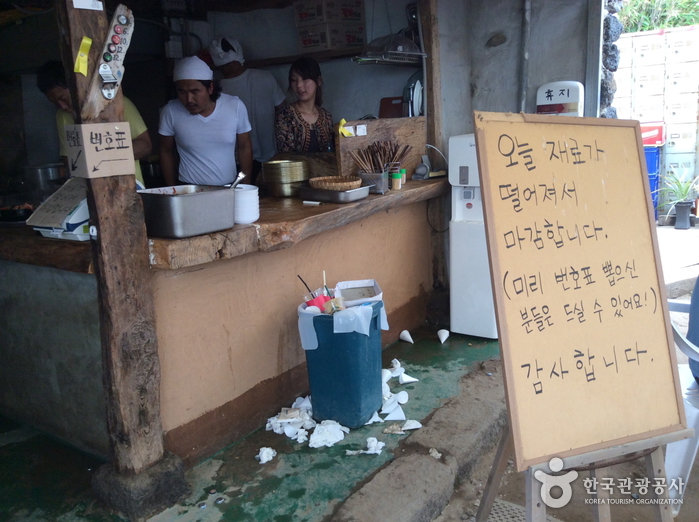 번호표
휴지
오늘 재료가
떨어져서
마감합니다.
(미리 번호표 뽑으신
분들은 드실 수 있어요!)
감사합니다.
한국관광공사
KOREA TOURISM ORGANIZATION